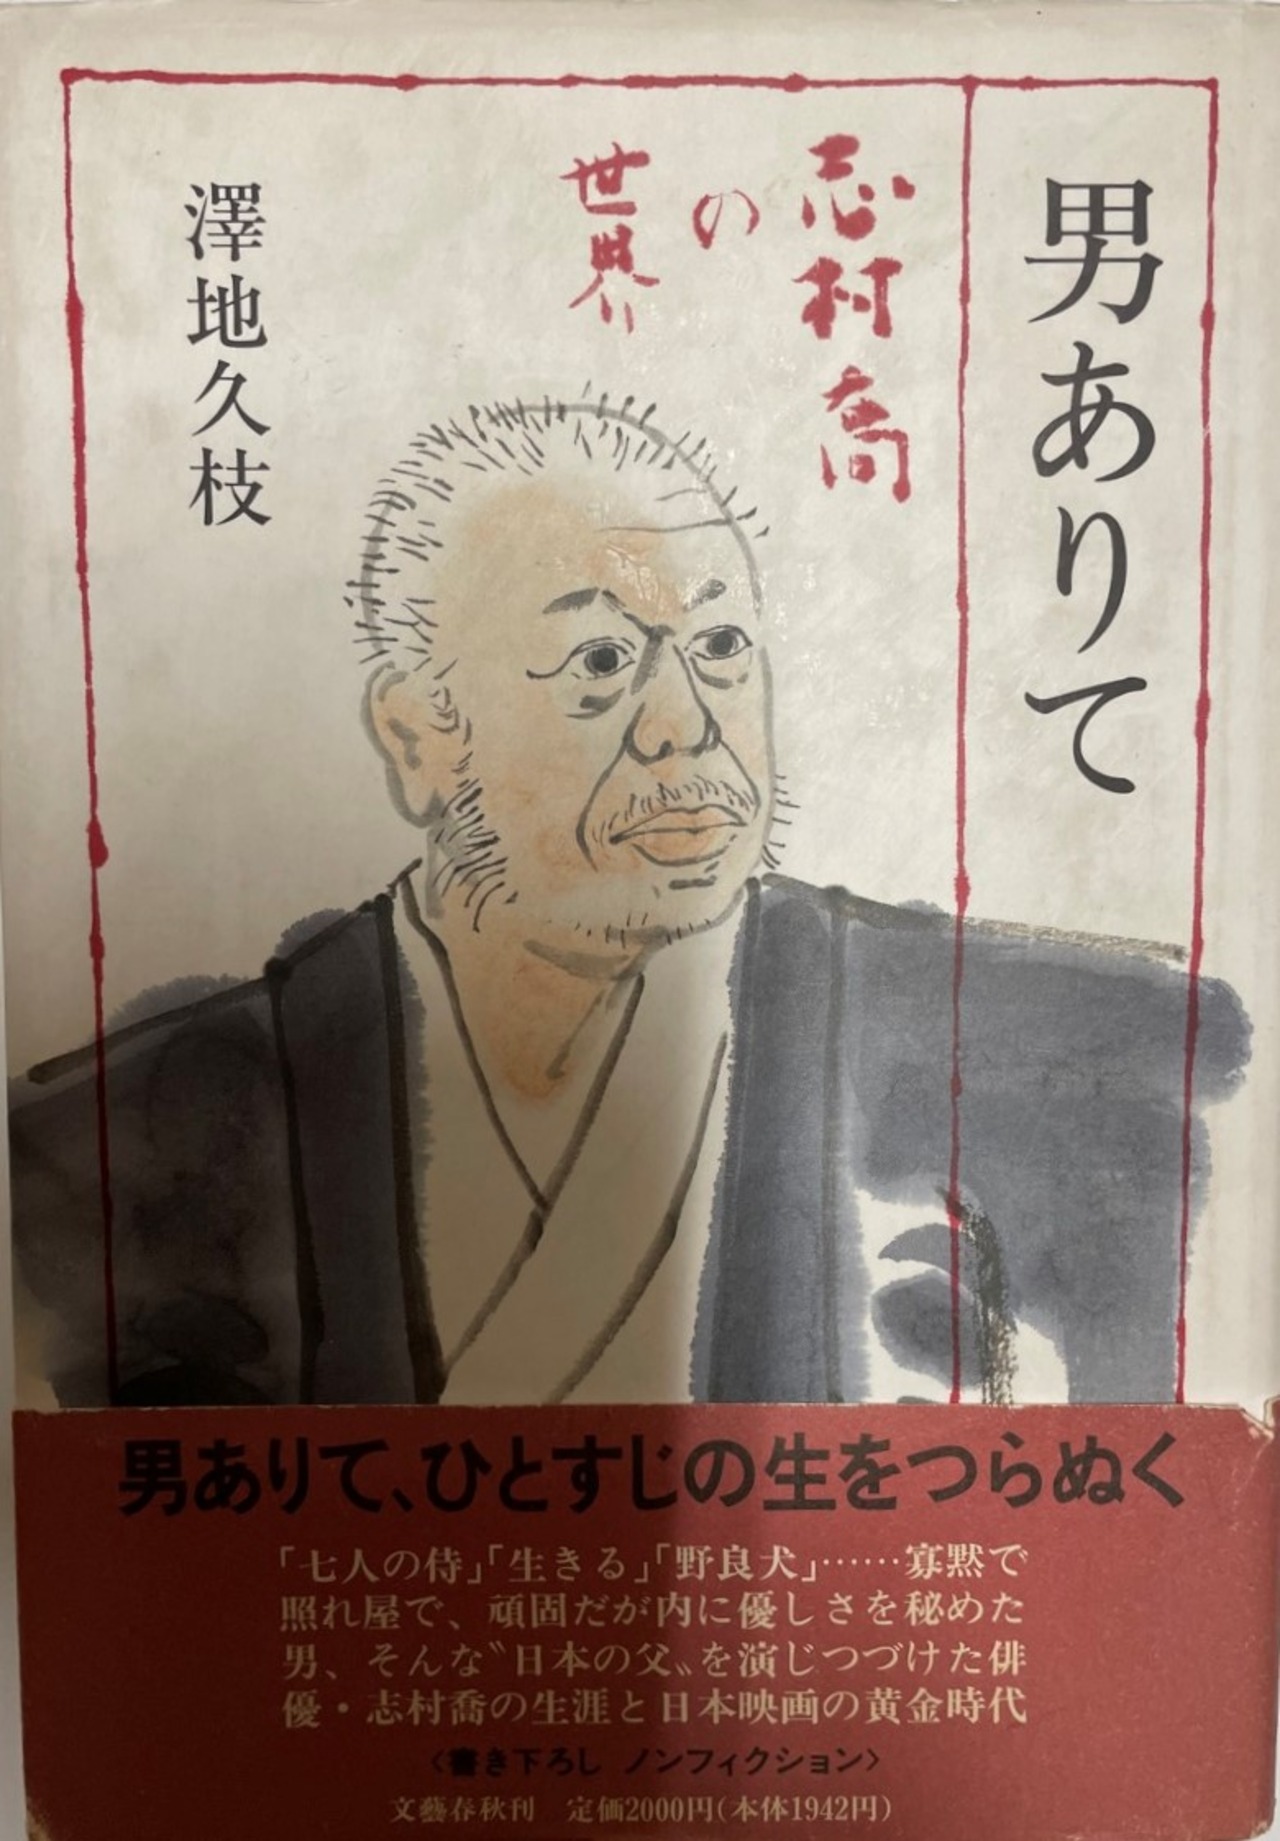 男ありて
志村喬
の
世界
澤地久枝
男ありて、ひとすじの生をつらぬく
「七人の侍」「生きる」「野良犬」……寡黙で
照れ屋で、頑固だが内に優しさを秘めた
男、そんな〝日本の父〟を演じつづけた俳
優・志村喬の生涯と日本映画の黄金時代
〈書き下ろし ノンフィクション〉
文藝春秋刊 定価2000円(本体1942円)